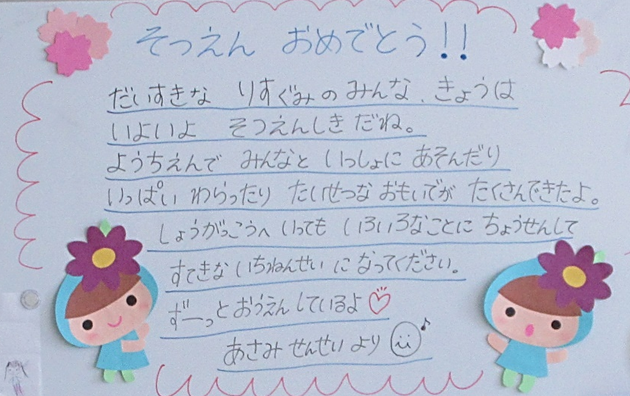 そつえん おめでとう!!
だいすきな りすぐみの みんな、きょうは
いよいよ そつえんしき だね。
ようちえんで みんなと いっしょに あそんだり
いっぱい わらったり たいせつな おもいでが たくさんできたよ。
しょうがっこうへ いっても いろいろなことに ちょうせんして
すてきな いちねんせい に なってください。
ずーっと おうえん しているよ♡
あさみ せんせい より ☺♪